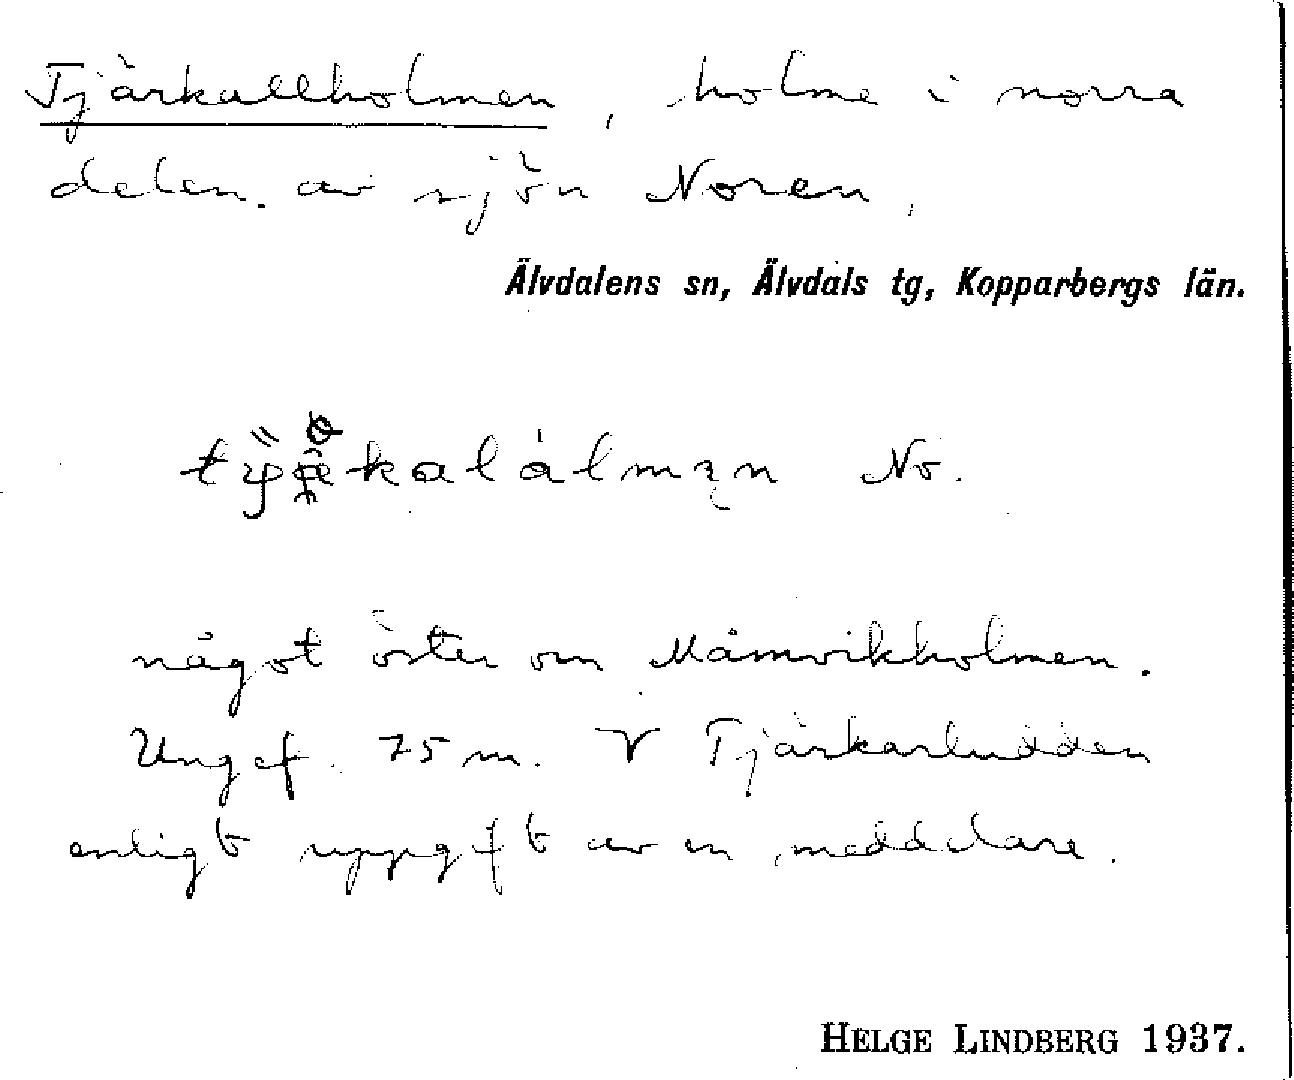 Tjärkallholmen, holme i norra
delen av sjön Noren,
Älvdalens sn, Älvdals tg, Kopparbergs län.
No.
något öster om Måmvikholmen.
Ungef. 75 m. V Tjärkarludden
enligt uppgift av en meddelare.
HELGE LINDBERG 1937.